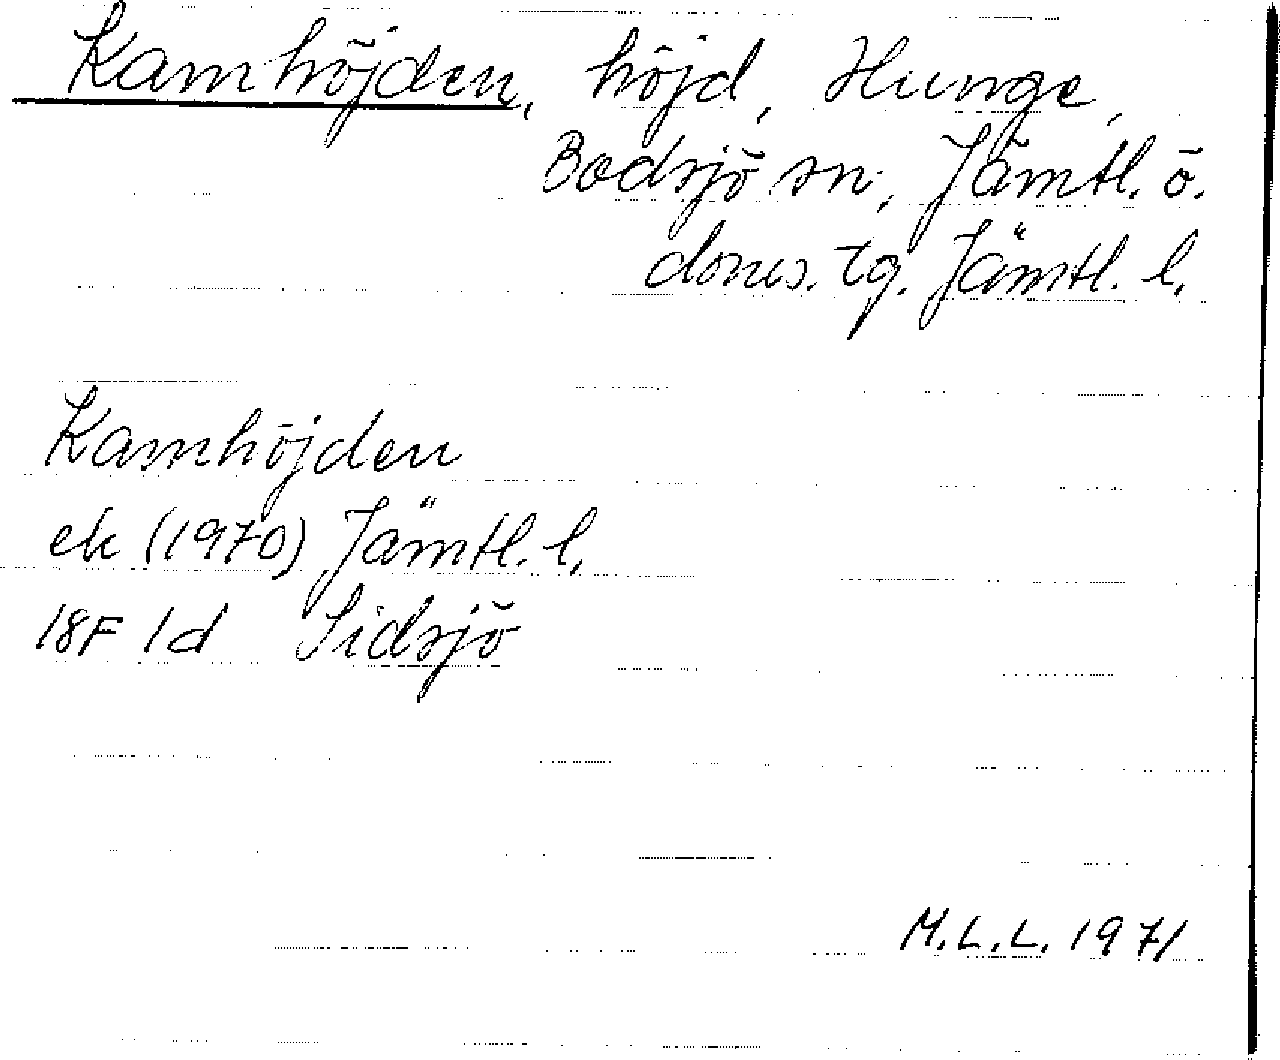 Kamhöjden, höjd, Hunge,
Bodsjö sn, Jämtl. ö.
doms. tg. Jämtl. l.
Kamhöjden
ek (1970) Jämtl. l.
18F 1d Sidsjö
M.L.L. 1971